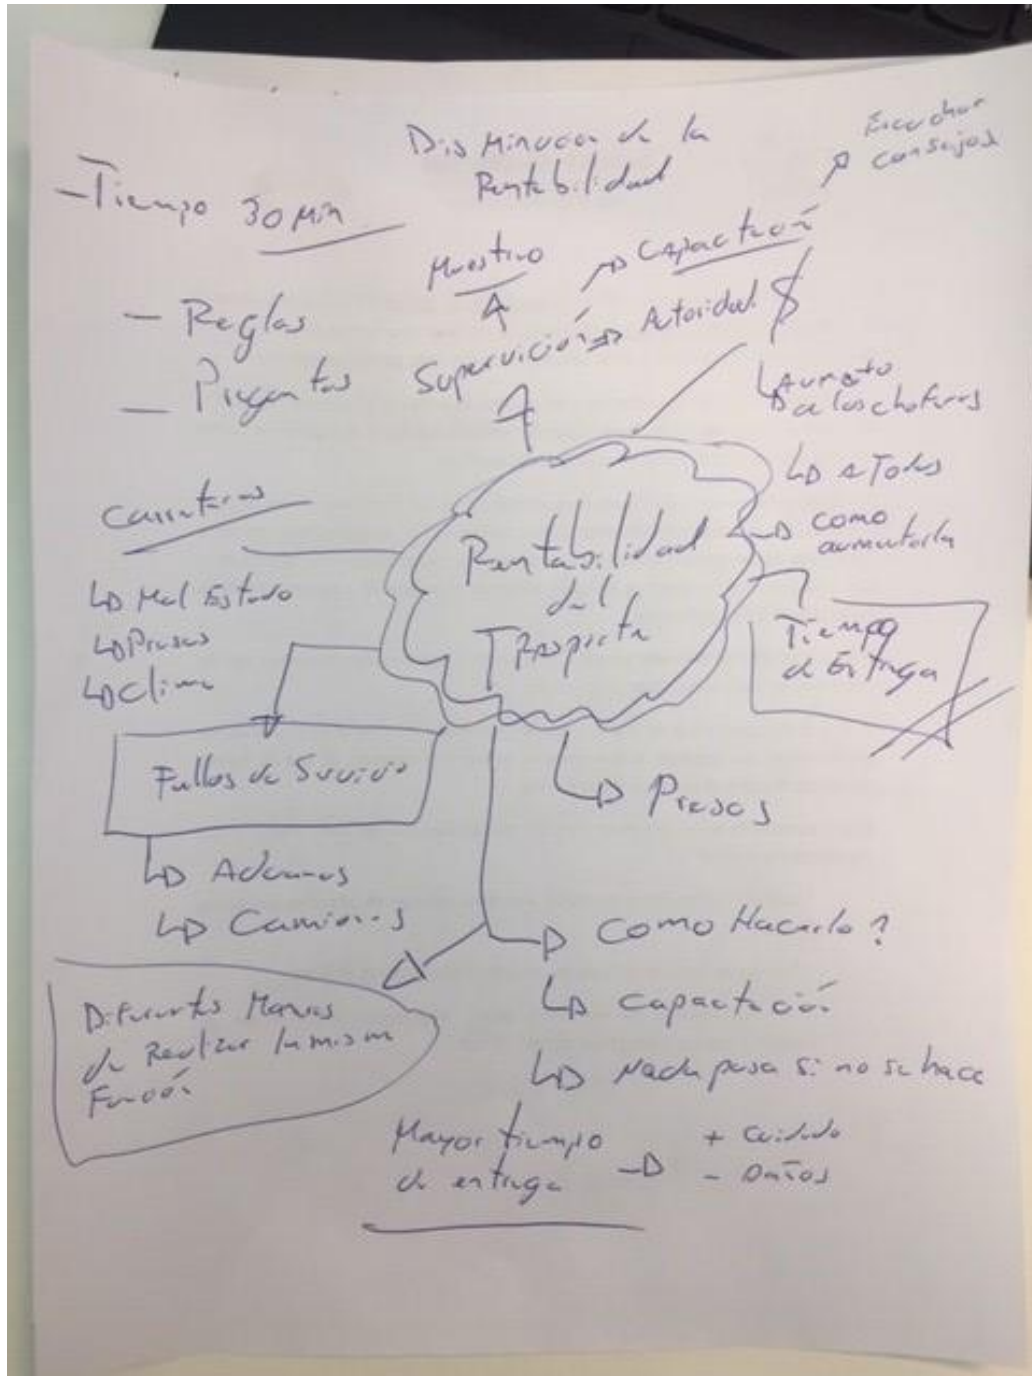 Disminucion de la
Rentabilidad
Escuchar
consejos
- Tiempo 30 Min
Muestreo
Capactación
- Reglas
- Preguntas
Supervición
Autoridad
$
Aumento
a los choferes
a Todos
como
aumentarla
Carreteras
Mal Estado
Presas
Clima
Rentabilidad
del
Trasporte
Tiempo
de Entrega
Fallos de Servicio
Aduanas
Camiones
Presas
Como Hacerlo?
Capactación
Nada pasa si no se hace
Diferentes Maneras
de Realizar la misma
Función
Mayor tiempo
de entrega
+ Cuidado
- Daños